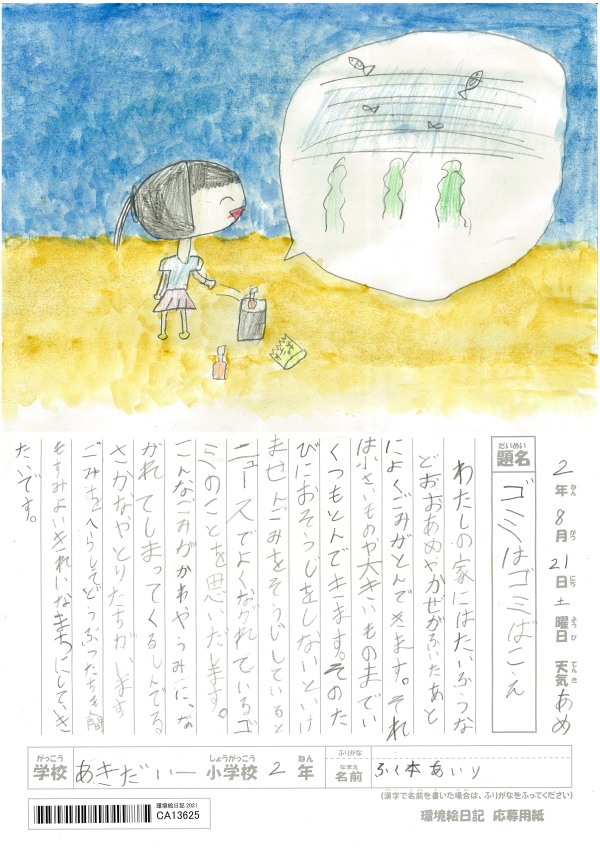 2年8月21日土曜日 天気 あめ
だいめい
題名 ゴミはゴミばこえ
わたしの家にはたいふうな
どおおあめやかぜがふいたあと
によくごみがとんできます。それ
は小さいものや大きいものまでい
くつもとんできます。そのた
びにおそうじをしないといけ
ませんごみをそうじしていると
ニュースでよくながれているゴ
ミのことを思いだします。
こんなごみがかわやうみに、な
がれてしまってくるしんでる
さかなやとりたちがいます
ごみをへらしてどうぶつたちも人間
もすみよいきれいなまちにしていき
たいです。
がっこう しょうがっこう ねん
学校 あきだい一 小学校 2年
ふりがな
なまえ
名前 ふく本あいり
(漢字で名前を書いた場合は、ふりがなをふってください)
環境絵日記 応募用紙
環境絵日記 2021
CA13625